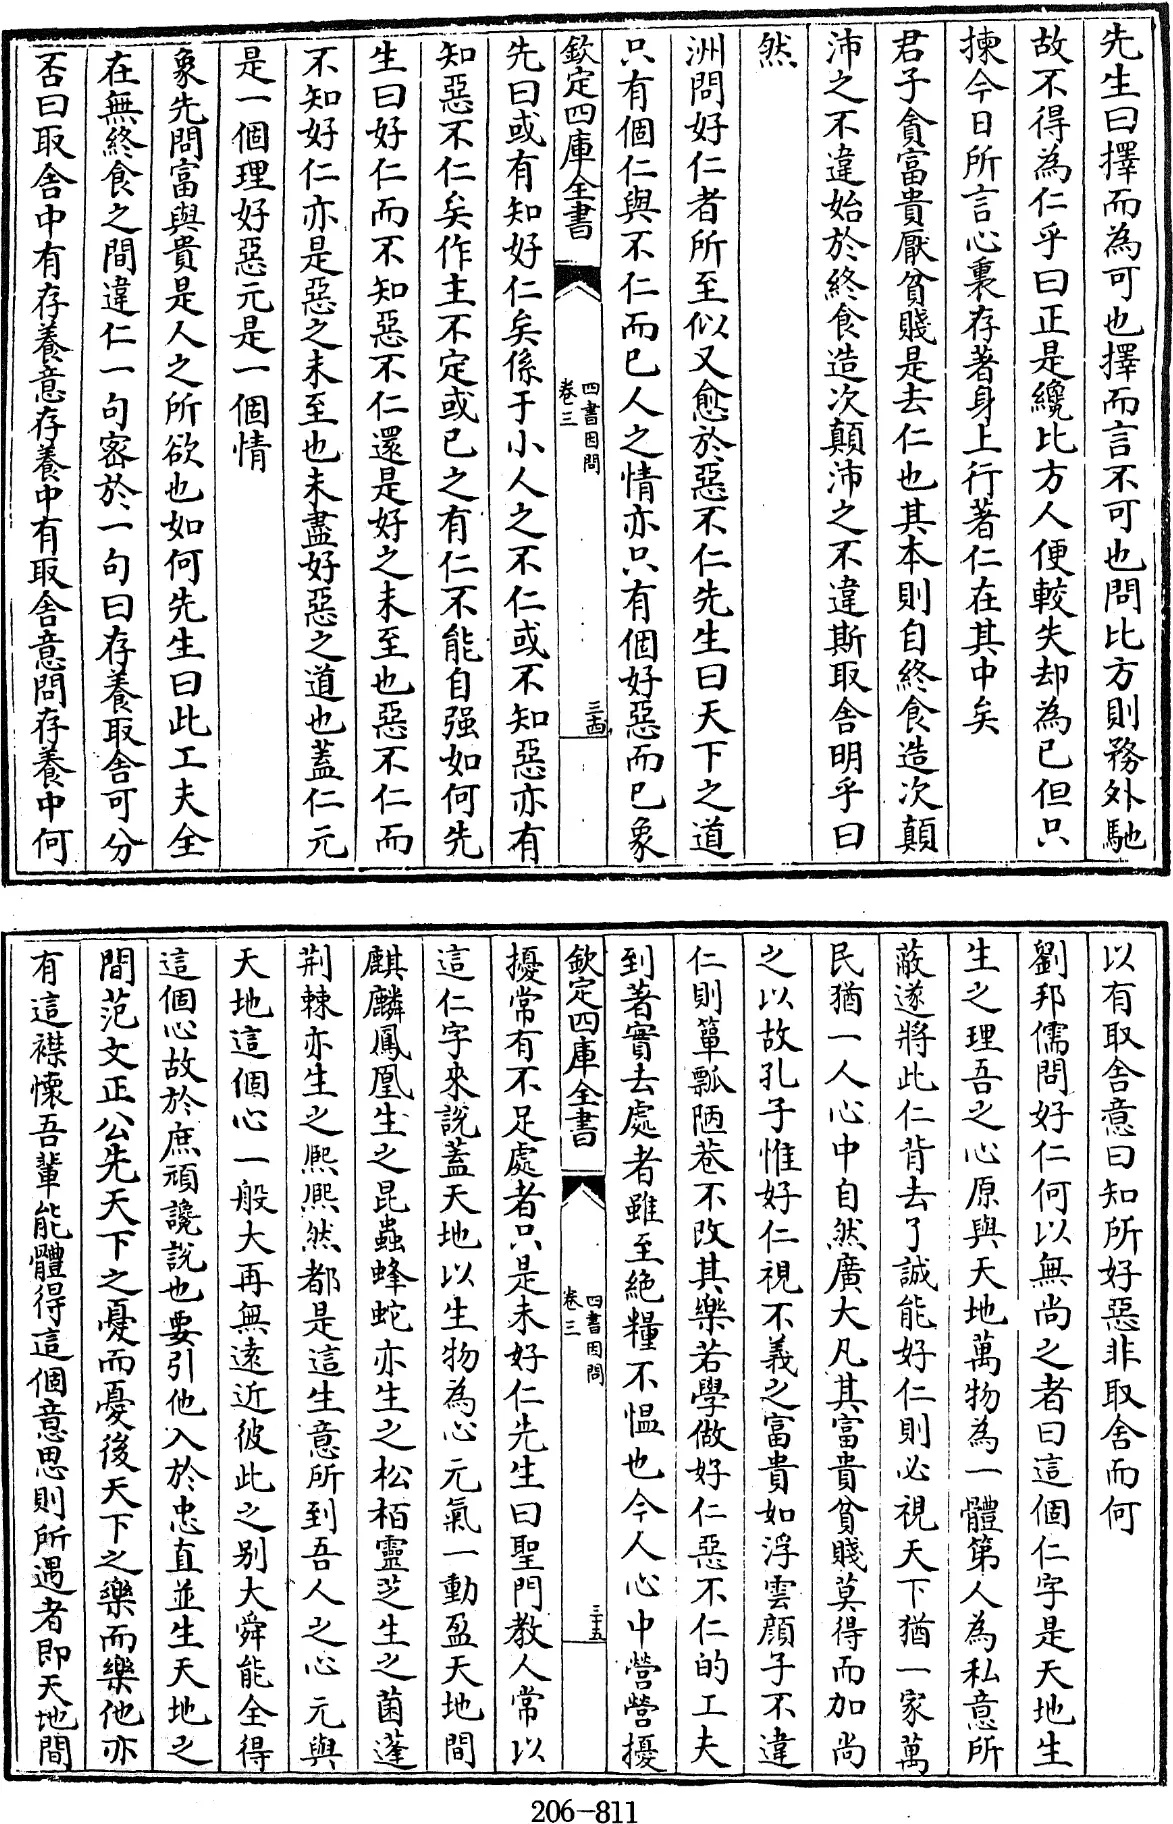 先生曰擇而為可也擇而言不可也問比方則務外馳
故不得為仁乎曰正是纔比方人便較失却為已但只
揀今日所言心裏存著身上行著仁在其中矣
君子貪富貴厭貧賤是去仁也其本則自終食造次顛
沛之不違始於終食造次顛沛之不違斯取舍明乎曰
然
洲問好仁者所至似又愈於惡不仁先生曰天下之道
只有個仁與不仁而已人之情亦只有個好惡而已象
欽定四庫全書
四書因問
卷三
三十四
先曰或有知好仁矣係于小人之不仁或不知惡亦有
知惡不仁矣作主不定或已之有仁不能自强如何先
生曰好仁而不知惡不仁還是好之未至也惡不仁而
不知好仁亦是惡之未至也未盡好惡之道也蓋仁元
是一個理好惡元是一個情
象先問富與貴是人之所欲也如何先生曰此工夫全
在無終食之間違仁一句密於一句曰存養取舍可分
否曰取舍中有存養意存養中有取舍意問存養中何
以有取舍意曰知所好惡非取舍而何
劉邦儒問好仁何以無尚之者曰這個仁字是天地生
生之理吾之心原與天地萬物為一體第人為私意所
蔽遂將此仁背去了誠能好仁則必視天下猶一家萬
民猶一人心中自然廣大凡其富貴貧賤莫得而加尚
之以故孔子惟好仁視不義之富貴如浮雲顔子不違
仁則簞瓢陋巷不改其樂若學做好仁惡不仁的工夫
到著實去處者雖至絶糧不愠也今人心中營營擾
欽定四庫全書
四書因問
卷三
三十五
擾常有不足處者只是未好仁先生曰聖門教人常以
這仁字來説蓋天地以生物為心元氣一動盈天地間
麒麟鳳凰生之昆蟲蜂蛇亦生之松栢靈芝生之菌蓬
荆棘亦生之熈熈然都是這生意所到吾人之心元與
天地這個心一般大再無遠近彼此之别大舜能全得
這個心故於庶頑讒説也要引他入於忠直並生天地之
間范文正公先天下之憂而憂後天下之樂而樂他亦
有這襟懷吾輩能體得這個意思則所遇者即天地間
206-811